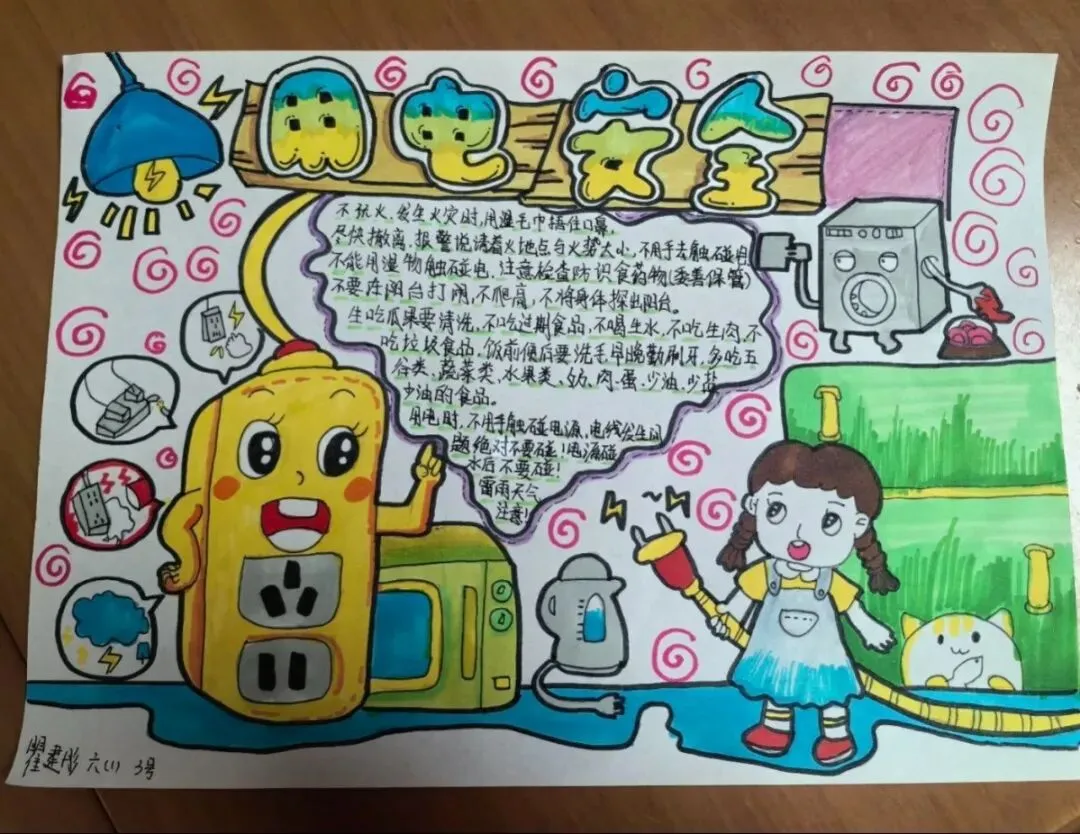 用电安全
不玩火、发生火灾时,用湿毛巾捂住口鼻,
尽快撤离,报警说清着火地点与火势大小,不用手去触碰电
不能用湿物触碰电,注意检查防识食药物(委善保管)
不要在阳台打闹,不爬高,不将身体探出阳台。
生吃瓜果要清洗,不吃过期食品,不喝生水,不吃生肉,不
吃垃圾食品,饭前便后要洗毛早晚勤刷牙,多吃五
谷类、蔬菜类、水果类、奶、肉、蛋、少油、少盐
少油的食品。
用电时,不用手触碰电源,电线发生问
题绝对不要碰!电源碰
水后不要碰!
雷雨天气
注意!
建彤 六(1) 3号